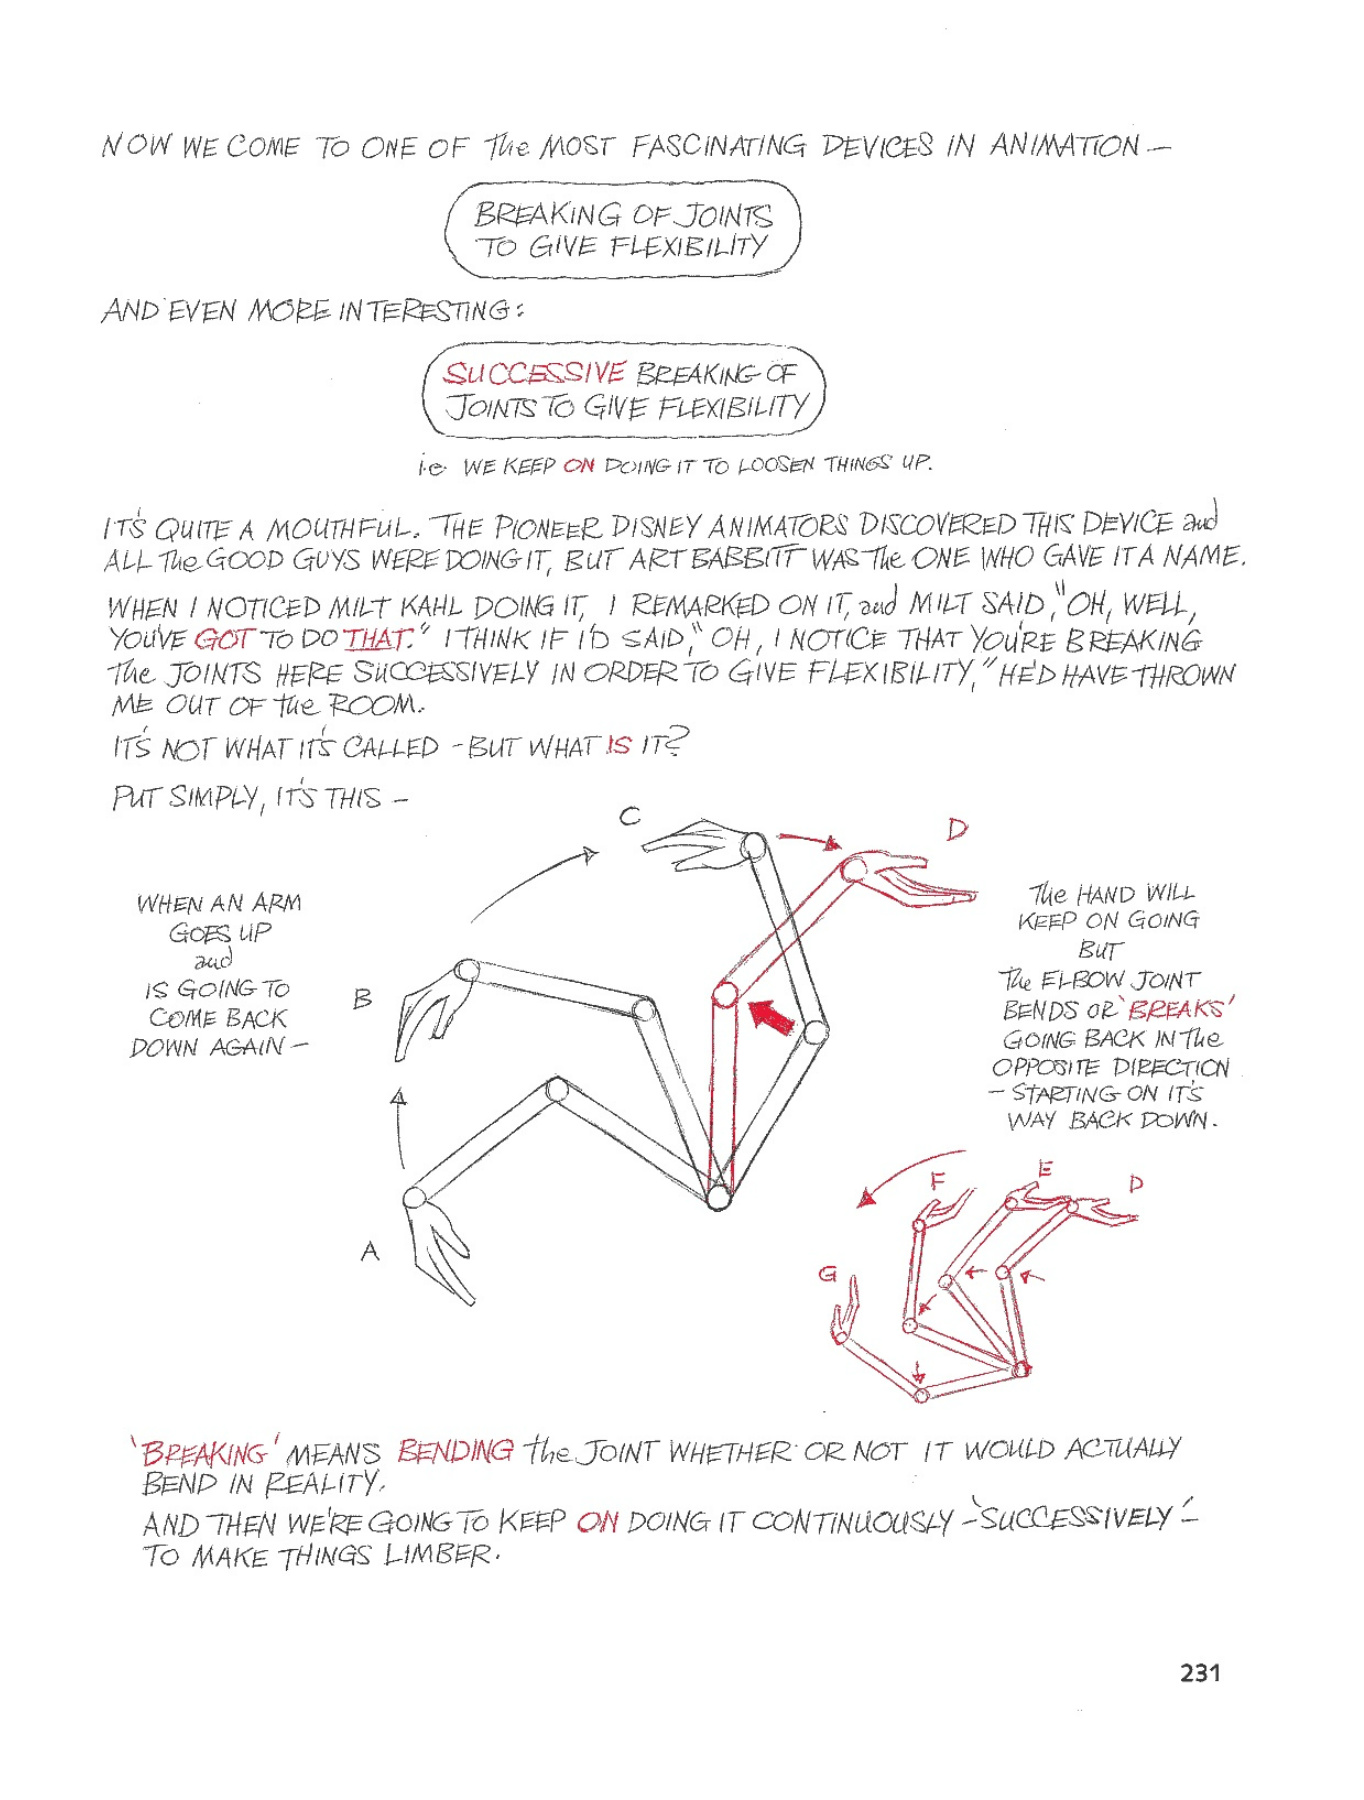 NOW WE COME TO ONE OF The MOST FASCINATING DEVICES IN ANIMATION —
BREAKING OF JOINTS
TO GIVE FLEXIBILITY
AND EVEN MORE INTERESTING:
SUCCESSIVE BREAKING OF
JOINTS TO GIVE FLEXIBILITY
i.e. WE KEEP ON DOING IT TO LOOSEN THINGS UP.
IT'S QUITE A MOUTHFUL. THE PIONEER DISNEY ANIMATORS DISCOVERED THIS DEVICE and
ALL The GOOD GUYS WERE DOING IT, BUT ART BABBITT WAS The ONE WHO GAVE IT A NAME.
WHEN I NOTICED MILT KAHL DOING IT, I REMARKED ON IT, and MILT SAID, "OH, WELL,
YOU'VE GOT TO DO THAT." I THINK IF I'D SAID, "OH, I NOTICE THAT YOU'RE BREAKING
The JOINTS HERE SUCCESSIVELY IN ORDER TO GIVE FLEXIBILITY," HE'D HAVE THROWN
ME OUT OF the ROOM.
IT'S NOT WHAT IT'S CALLED - BUT WHAT IS IT?
PUT SIMPLY, IT'S THIS —
C
D
WHEN AN ARM
GOES UP
and
IS GOING TO
COME BACK
DOWN AGAIN —
B
A
The HAND WILL
KEEP ON GOING
BUT
The ELBOW JOINT
BENDS OR 'BREAKS'
GOING BACK IN The
OPPOSITE DIRECTION
— STARTING ON IT'S
WAY BACK DOWN.
F
E
D
G
'BREAKING' MEANS BENDING the JOINT WHETHER OR NOT IT WOULD ACTUALLY
BEND IN REALITY.
AND THEN WE'RE GOING TO KEEP ON DOING IT CONTINUOUSLY - 'SUCCESSIVELY' -
TO MAKE THINGS LIMBER.
231